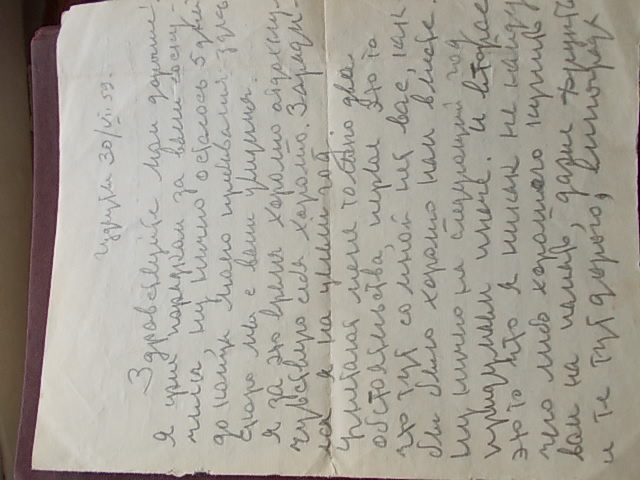 Гудаута 30/VI. 59.
Здравствуйте мои дорогие!
я уже порядком за вами соску-
чился, ну ничего осталось 5 дней
до конца моего пребывания здесь
скоро мы с вами увидимся.
Я за это время хорошо отдохнул
чувствую себя хорошо. Заряди-
лся я на целый год
Угнетают меня только два
обстоятельства, первое это то
что тут со мной нет вас, как
бы было хорошо нам вместе.
Ну ничего на следующий год
придумаем иначе. И второе
это то что я никак не найду
чего либо хорошего купить
вам на память, даже фрукты
и те тут дорого, виноград